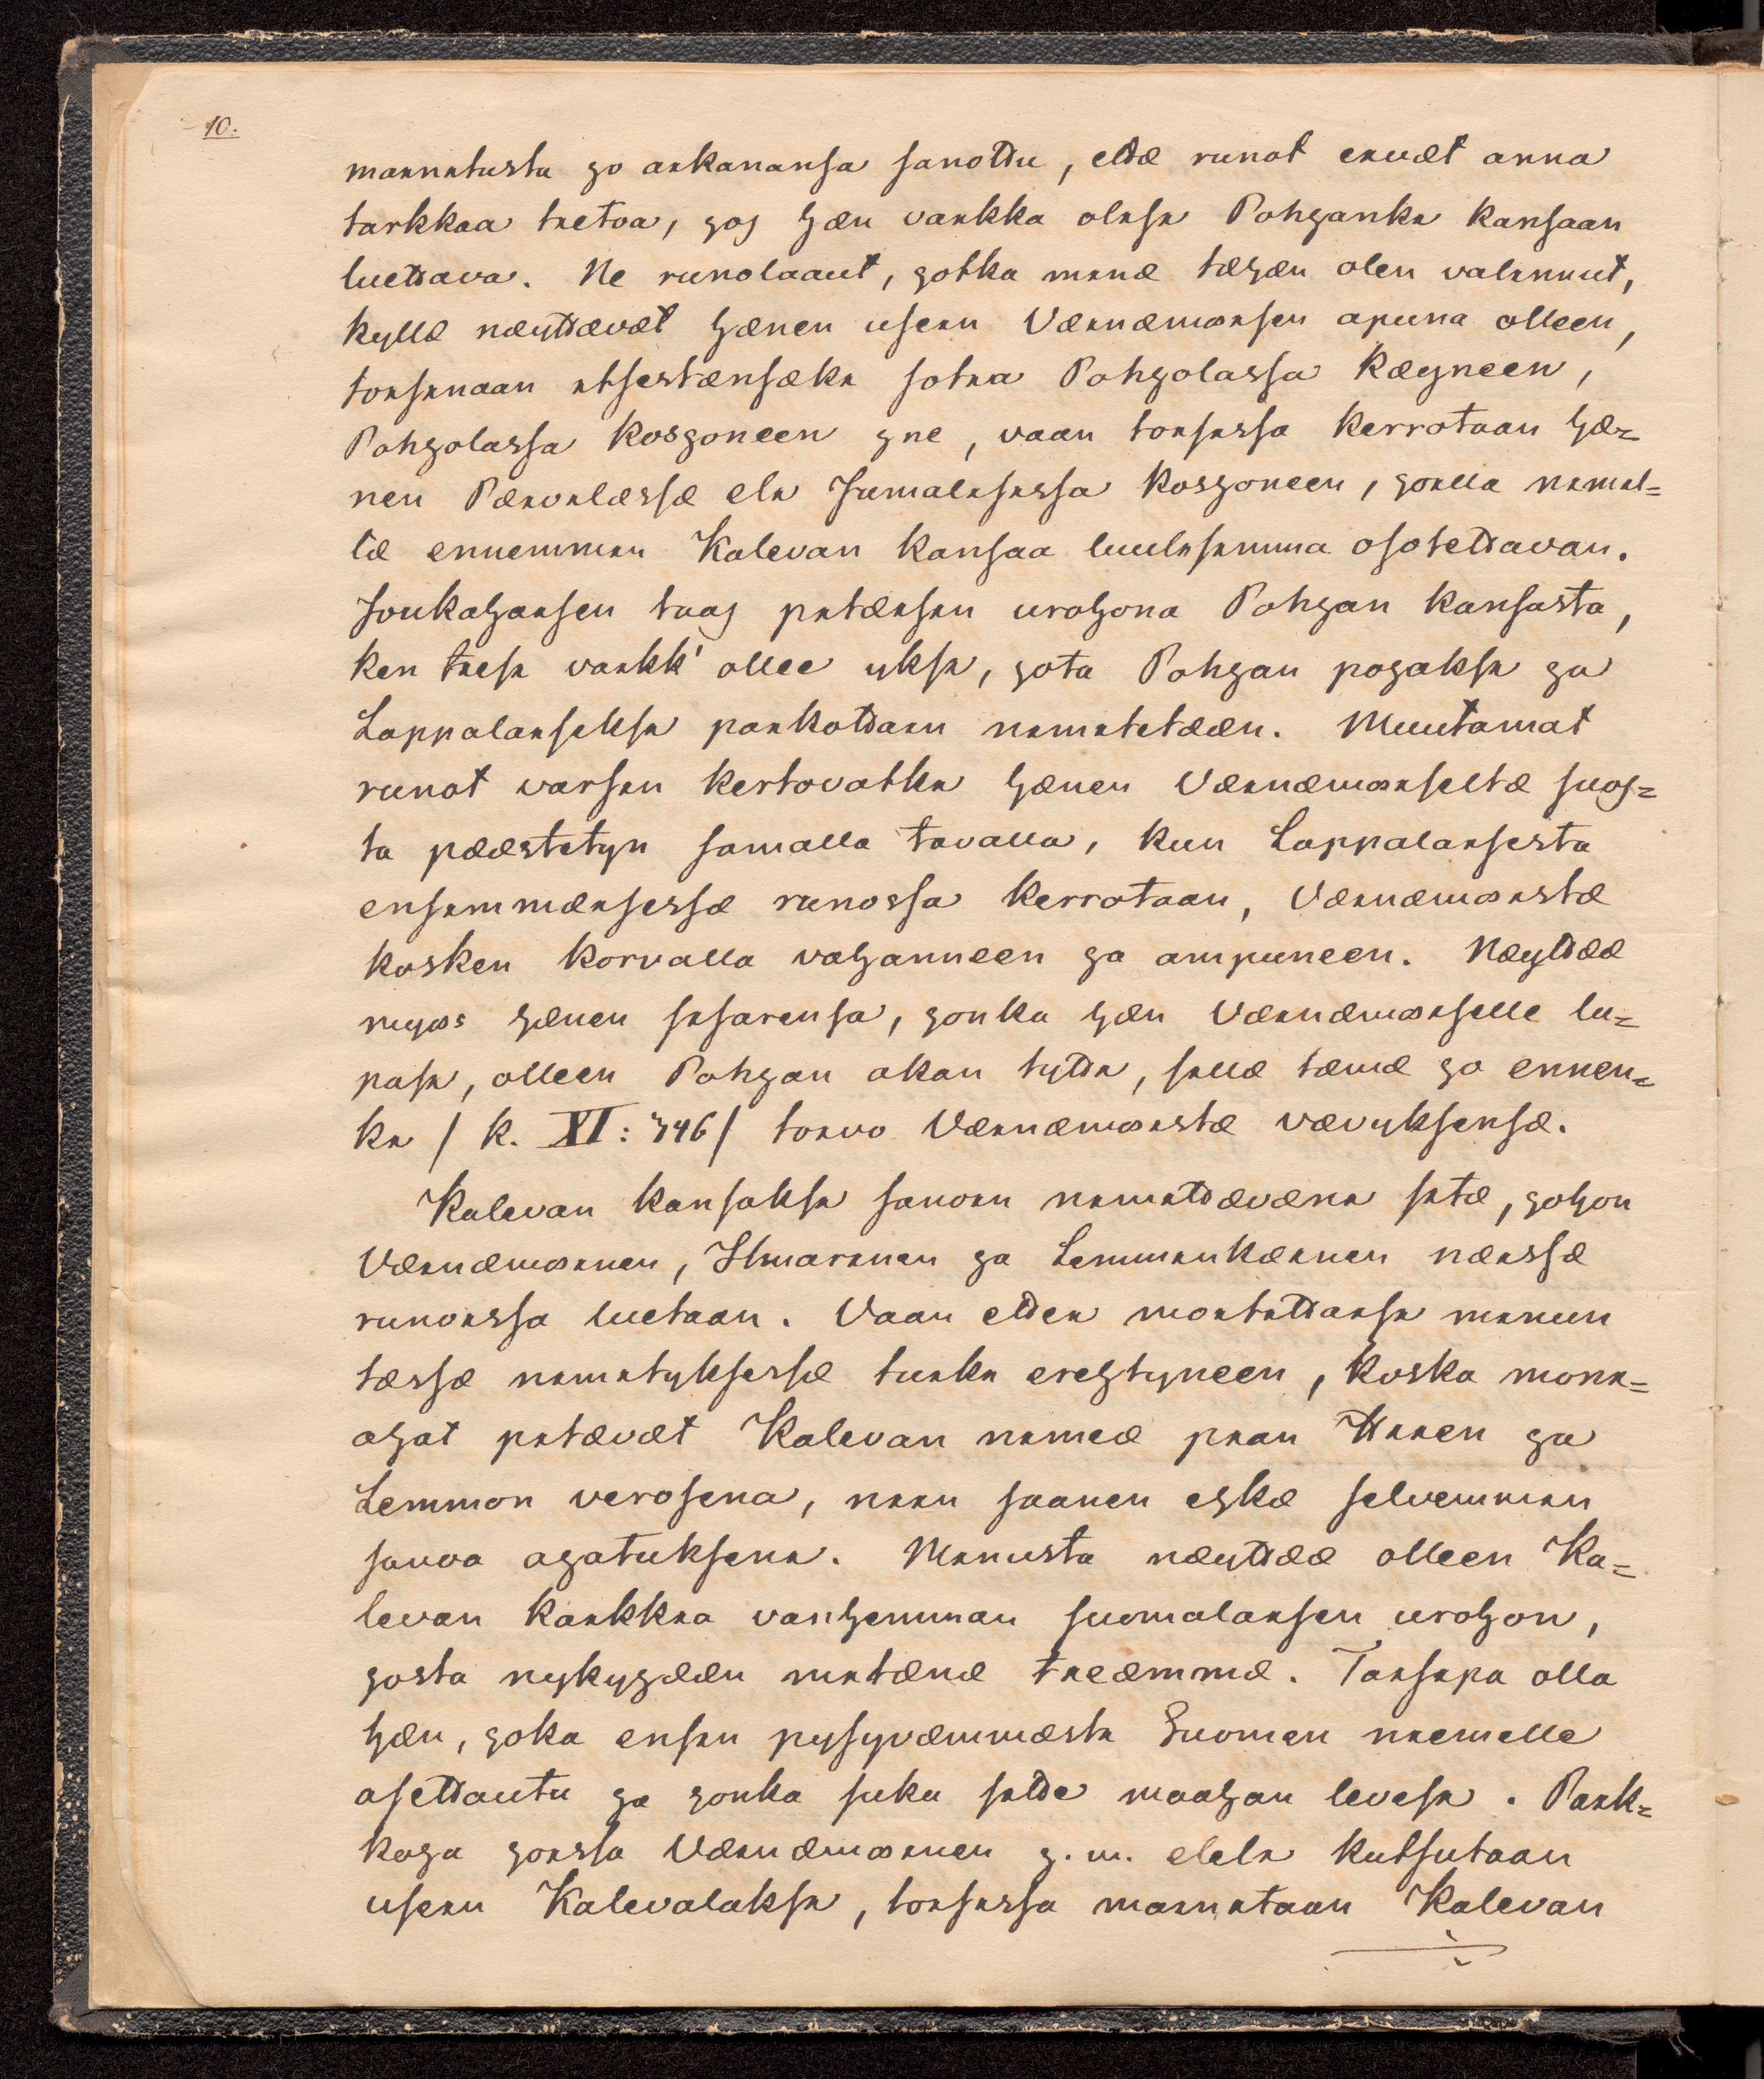 10.
mainitusta jo aikanansa sanottu, ettæ runot eivæt anna
tarkkaa tietoa, jos hæn vaikka olisi Pohjanki kansaan
luettava. Ne runolaaut, jotka minæ tæhæn olen valinnut,
kyllæ næyttævæt hænen usein Væinæmœisen apuna olleen,
toisinaan itsestænsæki sotia Pohjolassa kæyneen,
Pohjolassa kosjoneen jne, vaan toisissa kerrotaan hæ=
nen Pæivilæssæ eli Jumalisissa kosjoneen, joilla nimil=
læ ennemmin Kalevan kansaa luulisimma osotettavan.
Joukahaisen taas pitæisin urohona Pohjan kansasta,
ken tiesi vaikk' ollee yksi, jota Pohjan pojaksi ja
Lappalaiseksi paikottain nimitetææn. Muutamat
runot varsin kertovatki hænen Væinæmœiseltæ suos=
ta pææstetyn samalla tavalla, kun Lappalaisesta
ensimmæisessæ runossa kerrotaan, Væinæmœistæ
kosken korvalla vahanneen ja ampuneen. Næyttææ
myœs hænen sisarensa, jonka hæn Væinæmœiselle lu=
pasi, olleen Pohjan akan tytti, sillæ tæmæ jo ennen=
ki /k. XI: 346/ toivo Væinæmœistæ vævyksensæ.
Kalevan kansaksi sanoin nimittæværi sitæ, johon
Væinæmœinen, Ilmarinen ja Lemminkæinen næissæ
runoissa luetaan. Vaan ettei moitittaisi minun
tæssæ nimityksessæ tuiki erehtyneen, koska moni=
ahat pitævæt Kalevan nimeæ piian Hiien ja
Lemmon verosena, niin saanen ehkæ selvemmin
sanoa ajatukseni. Minusta næyttææ olleen Ka=
levan kaikkia vanhemman suomalaisen urohon,
josta nykyjææn mitænæ tieæmmæ. Taisipa olla
hæn, joka ensin pysyvæmmæsti Suomen niemelle
asettautu ja jonka suku sitte maahan levesi. Paik=
koja joissa Væinæmœinen j. m. eleli kutsutaan
usein Kalevalaksi, toisissa mainitaan Kalevan